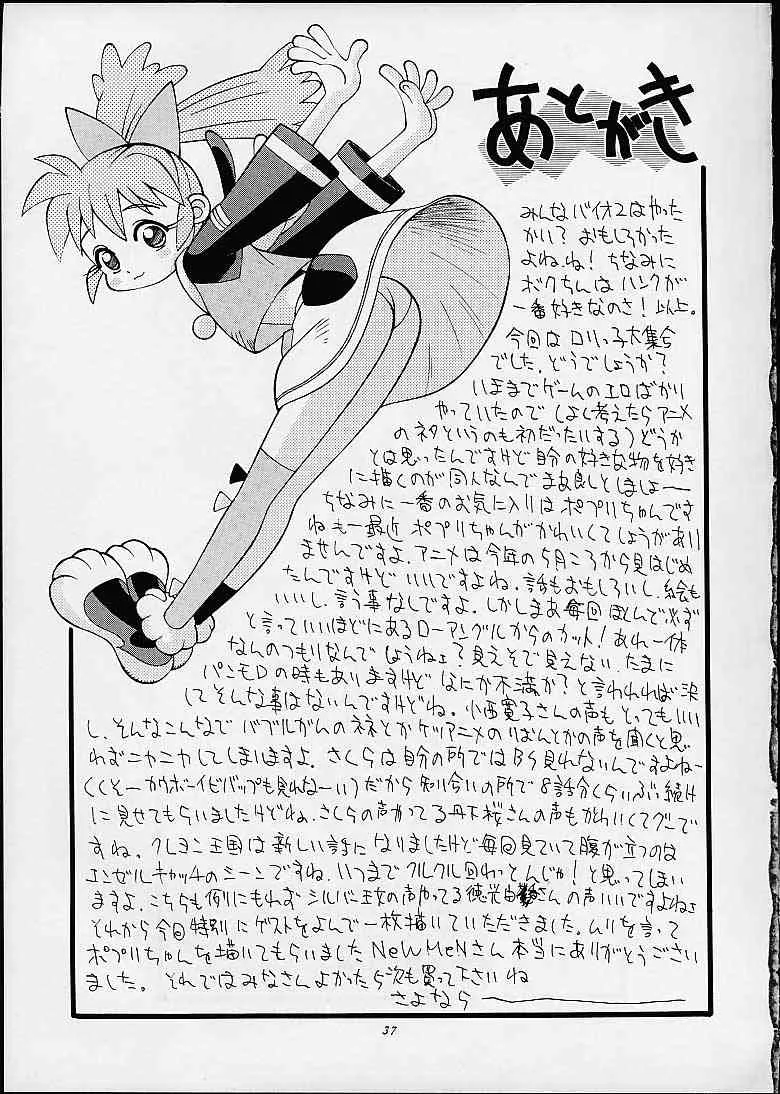 あとがき
みんなバイオ2はやった
かい？おもしろかった
よねね！ちなみに
ボクちんはハンクが
一番好きなのさ！以上。
今回はロリっ子大集合
でした。どうでしょうか？
いままでゲームのエロばかり
やっていたので(よく考えたらアニメ
のネタというのも初だったりする)どうか
とは思ったんですけど自分の好きな物を好き
に描くのが同人なんでまあ良しとしましょー
ちなみに一番のお気に入りはポプリちゃんです
ねも一最近ポプリちゃんがかわいくてしょうがあり
ませんですよ。アニメは今年の5月ころから見はじめ
たんですけどいいですよね。話もおもしろいし、絵も
いいし、言う事なしですよ。しかしまあ毎回ほとんど必ず
と言っていいほどにあるローアングルからのカット！あれ一体
なんのつもりなんでしょうねェ？見えそで見えない。たまに
パンモロの時もありますけどなにか不満か？と言われれば決
してそんな事はないんですけどね。小西寛子さんの声もとってもいい
し、そんなこんなでバブルがんのネネとかケツアニメのりぼんとかの声を聞くと思
わずニヤニヤしてしまいますよ。さくらは自分の所ではBS見れないんですよねー
(くそーカウボーイビバップも見れなーい)だから知り合いの所で8話分くらいぶっ続け
に見せてもらいましたけどね。さくらの声やってる丹下桜さんの声もかわいくてグーで
すね。クレヨン王国は新しい話になりましたけど毎回見ていて腹が立つのは
エンゼルキャッチのシーンですね。いつまでクルクル回わっとんじゃ！と思ってしまい
ますよ。こちらも例にもれずシルバー王女の声やってる徳光由さんの声いいですよねェ
それから今回特別にゲストをよんで一枚描いていただきました。ムリを言って
ポプリちゃんを描いてもらいましたNeWMeNさん本当にありがとうござい
ました。それではみなさんよかったら次も買って下さいね
さよなら
37